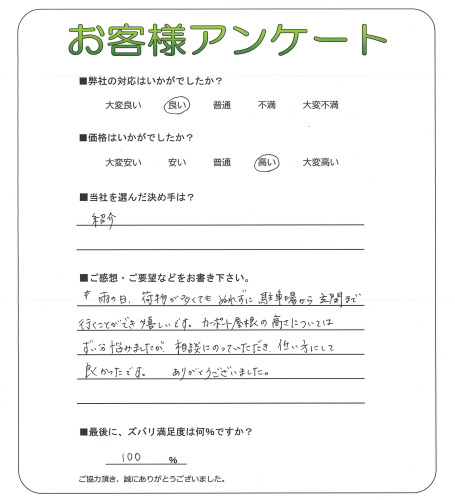 お客様アンケート
■弊社の対応はいかがでしたか?
大変良い 良い 普通 不満 大変不満
■価格はいかがでしたか?
大変安い 安い 普通 高い 大変高い
■当社を選んだ決め手は?
紹介
■ご感想・ご要望などをお書き下さい。
雨の日、荷物が多くてもぬれずに駐車場から玄関まで
行くことができ嬉しいです。カーポート屋根の高さについては
ずい分悩みましたが、相談にのっていただき、低い方にして
良かったです。 ありがとうございました。
■最後に、ズバリ満足度は何%ですか?
100 %
ご協力頂き、誠にありがとうございました。